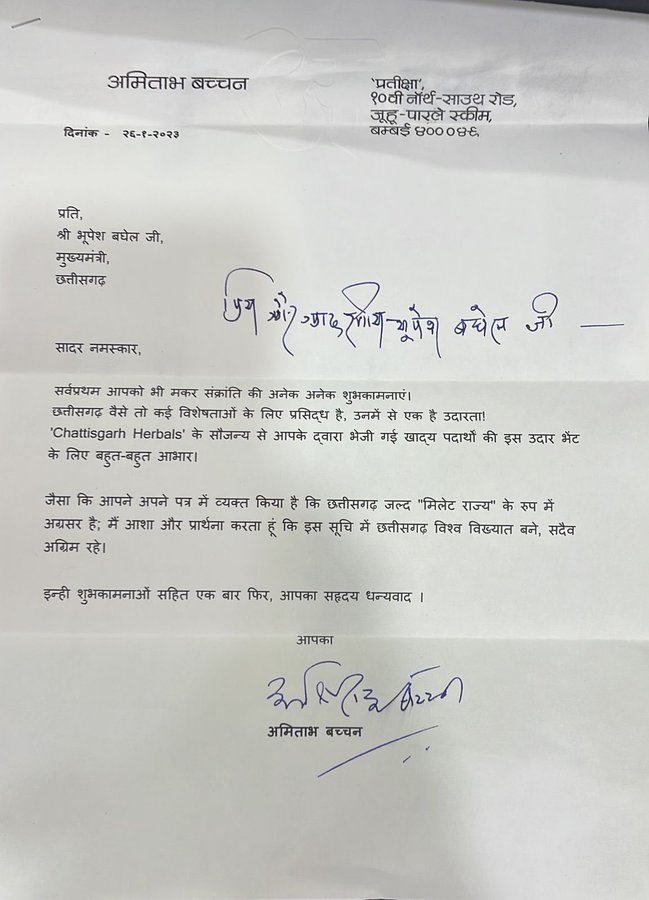 अमिताभ बच्चन
'प्रतीक्षा',
१०वी नॉर्थ-साउथ रोड,
जूहू-पारले स्कीम,
बम्बई ४०००४९.
दिनांक - २६-१-२०२३
प्रति,
श्री भूपेश बघेल जी,
मुख्यमंत्री,
छत्तीसगढ़
प्रिय और आदरणीय भूपेश बघेल जी —
सादर नमस्कार,
सर्वप्रथम आपको भी मकर संक्रांति की अनेक अनेक शुभकामनाएं।
छत्तीसगढ़ वैसे तो कई विशेषताओं के लिए प्रसिद्ध है, उनमें से एक है उदारता!
'Chattisgarh Herbals' के सौजन्य से आपके द्वारा भेजी गई खाद्य पदार्थो की इस उदार भेंट
के लिए बहुत-बहुत आभार।
जैसा कि आपने अपने पत्र में व्यक्त किया है कि छत्तीसगढ़ जल्द "मिलेट राज्य" के रुप में
अग्रसर है; मैं आशा और प्रार्थना करता हूं कि इस सूचि में छत्तीसगढ़ विश्व विख्यात बने, सदैव
अग्रिम रहे।
इन्ही शुभकामनाओं सहित एक बार फिर, आपका सहृदय धन्यवाद ।
आपका
अमिताभ बच्चन
अमिताभ बच्चन